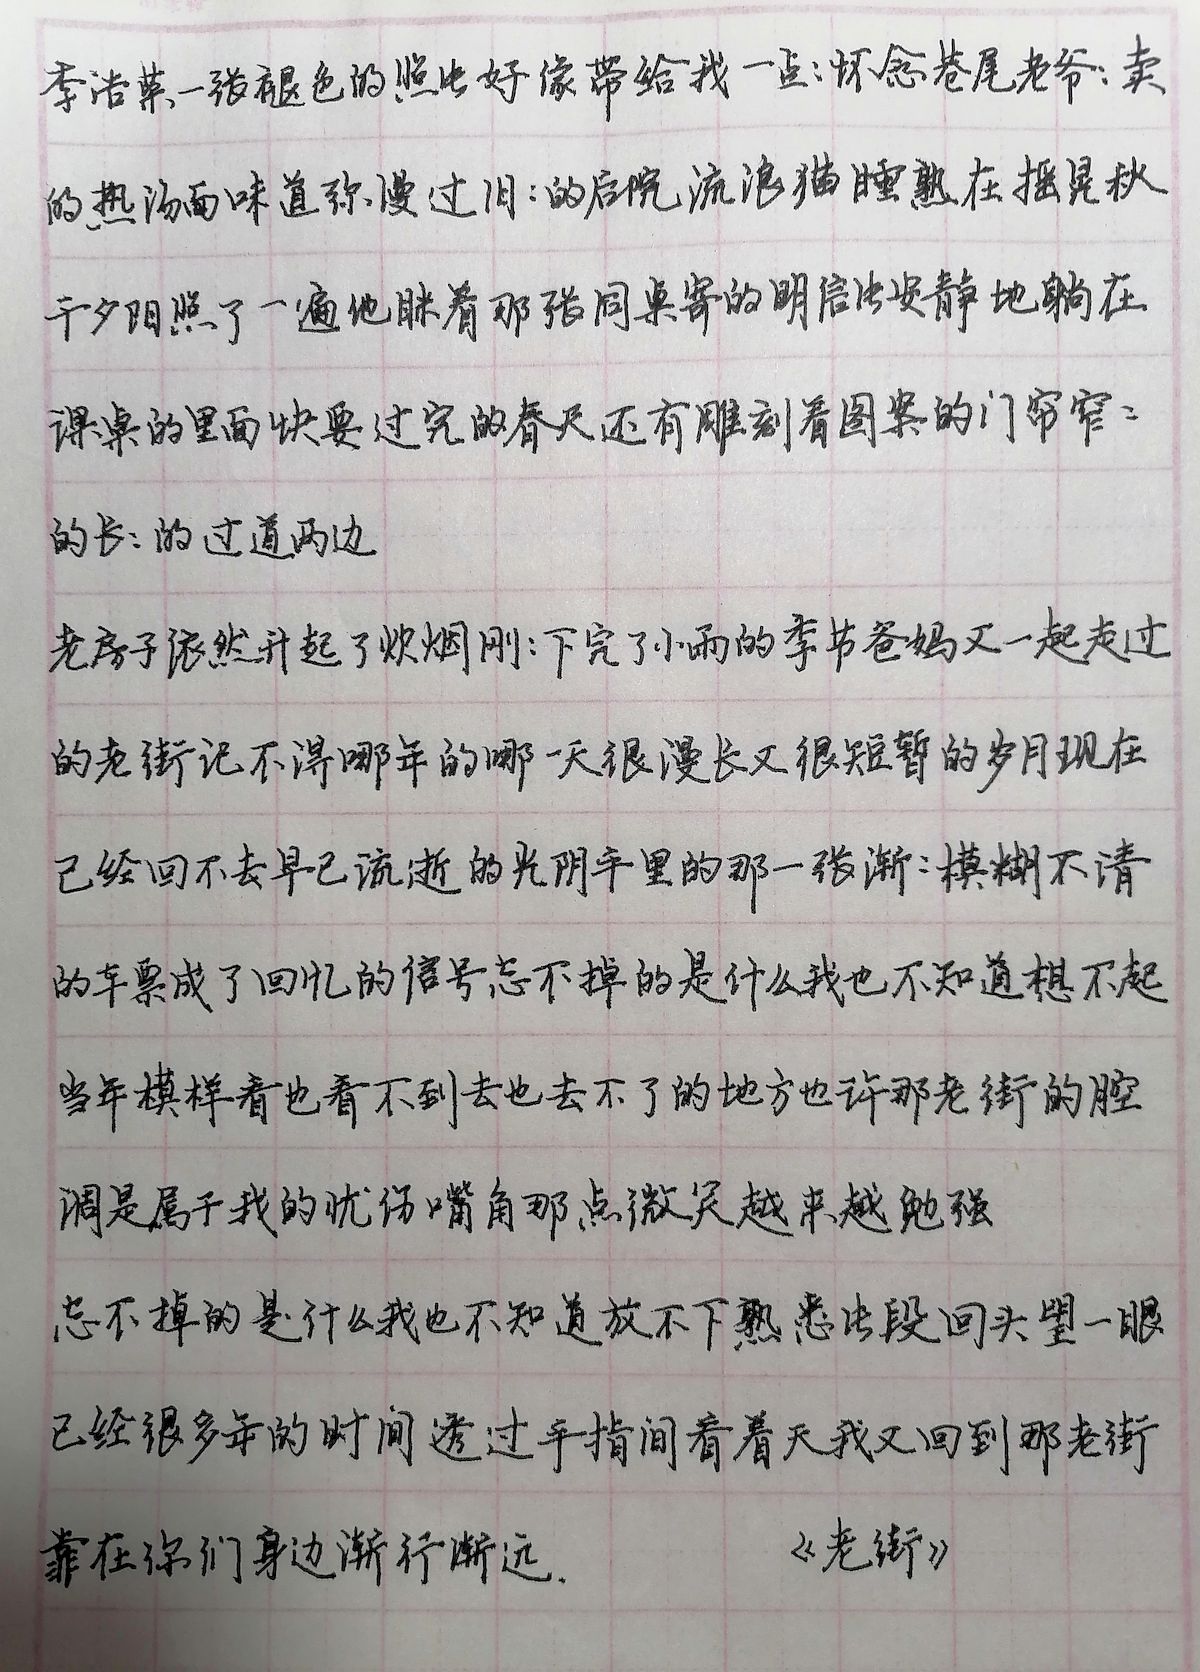 李浩菓、一张褪色的照片好像带给我一点:怀念巷尾老爷:卖
的热汤面味道弥漫过旧:的后院流浪猫睡熟在摇晃秋
千夕阳照了一遍他眯着那张同桌寄的明信片安静地躺在
课桌的里面快要过完的春天还有雕刻着图案的门帘窄:
的长:的过道两边
老房子依然升起了炊烟刚:下完了小雨的季节爸妈又一起走过
的老街记不得哪年的哪一天很漫长又很短暂的岁月现在
已经回不去早已流逝的光阴手里的那一张渐:模糊不清
的车票成了回忆的信号忘不掉的是什么我也不知道想不起
当年模样看也看不到去也去不了的地方也许那老街的腔
调是属于我的忧伤嘴角那点微笑越来越勉强
忘不掉的是什么我也不知道放不下熟悉片段回头望一眼
已经很多年的时间透过手指间看着天我又回到那老街
靠在你们身边渐行渐远.
《老街》